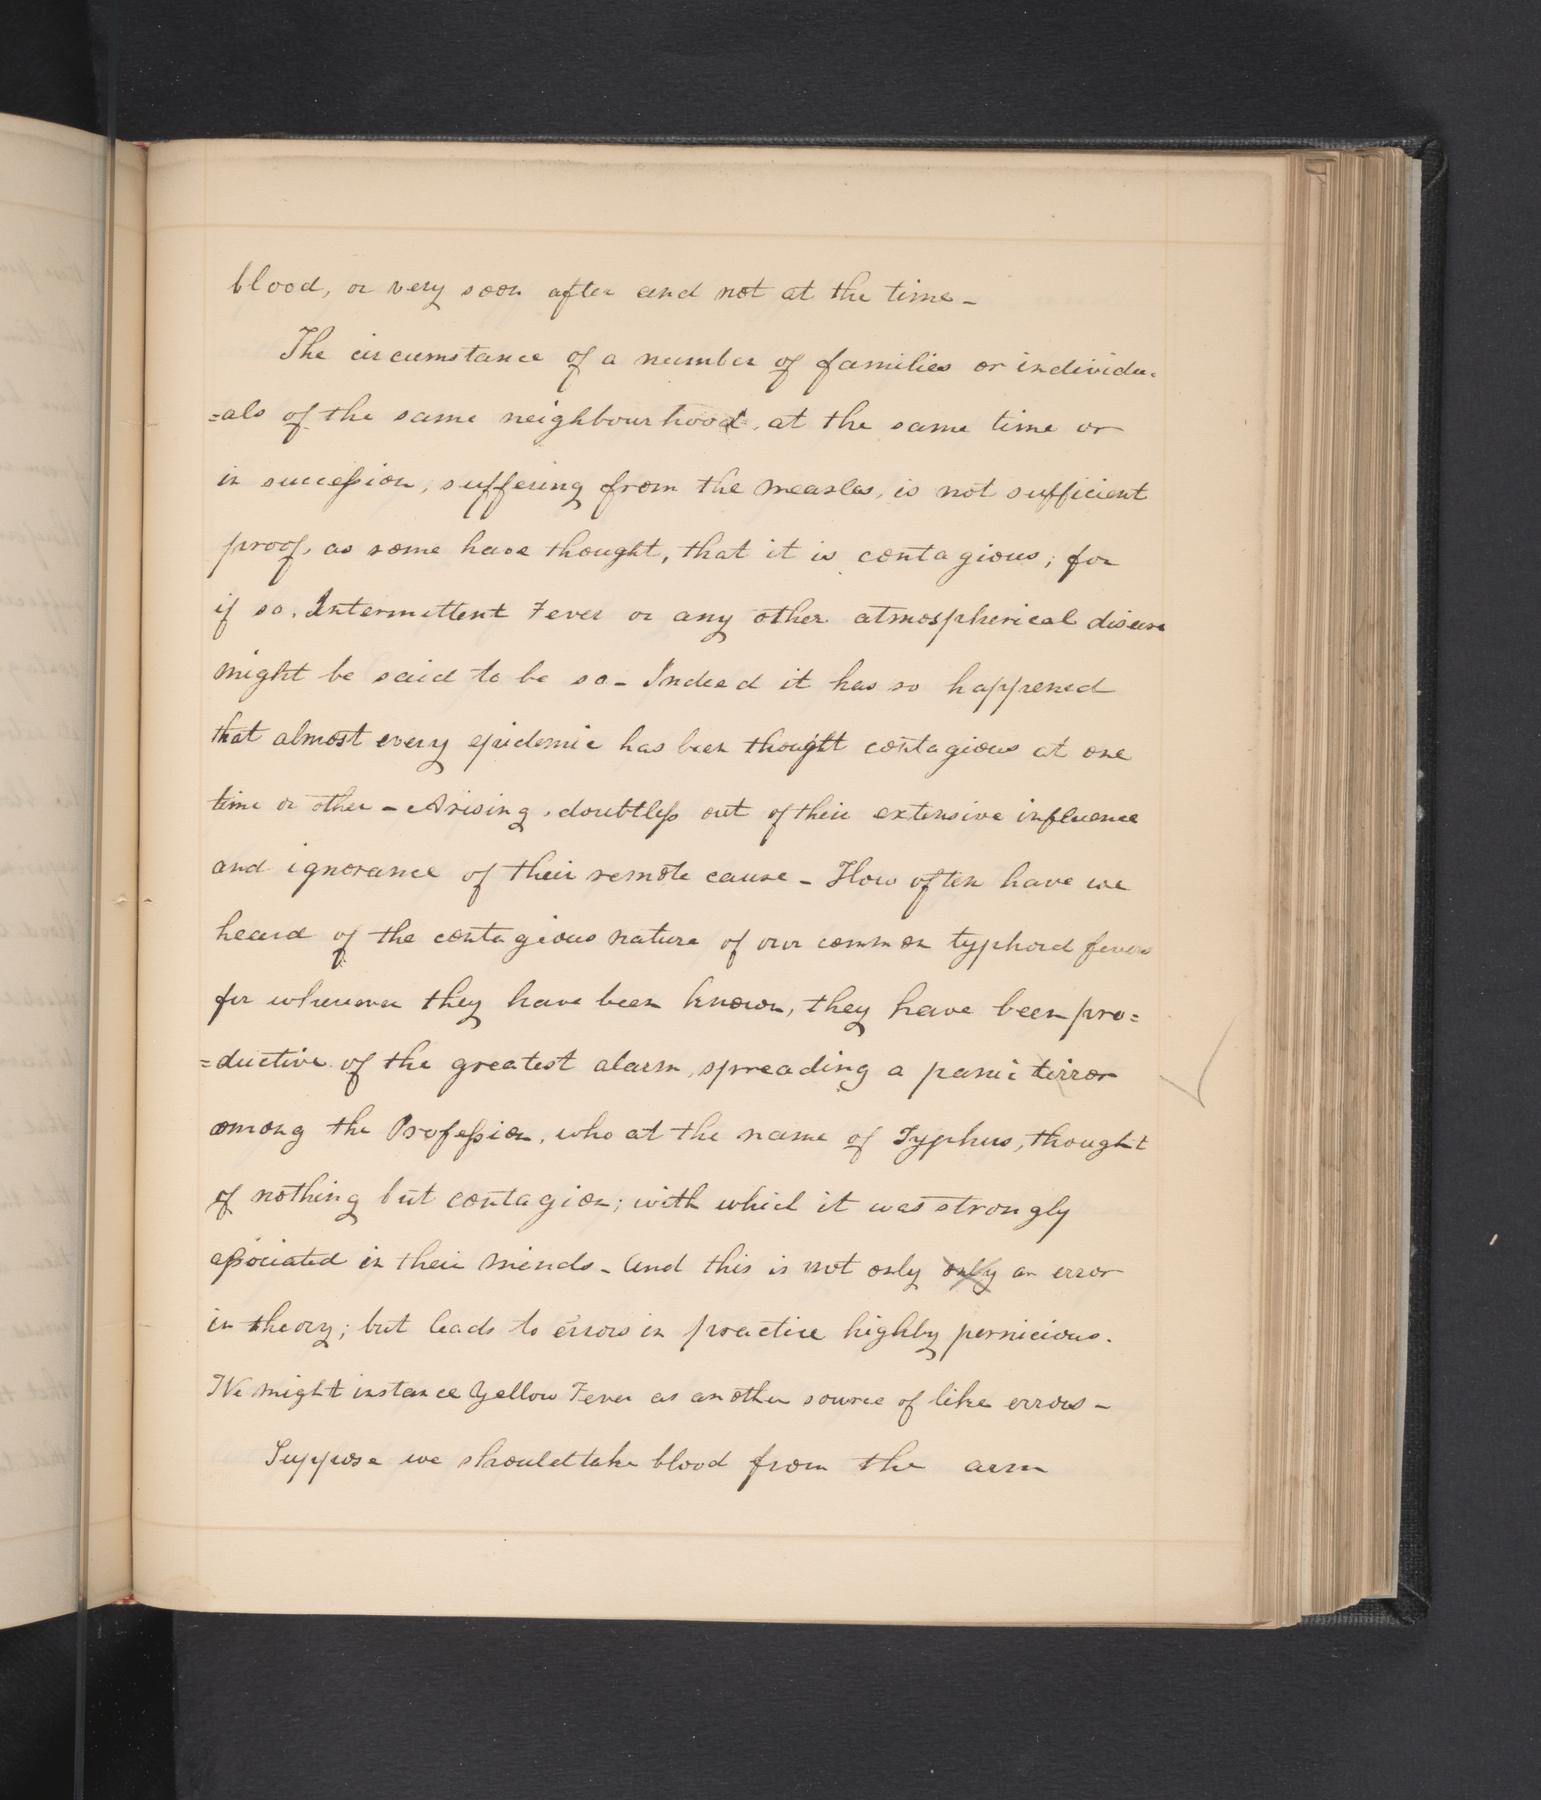 blood, or very soon after and not at the time –
The circumstance of a number of families or individu-
=als of the same neighbourhood, at the same time or
in succession, suffering from the measles, is not sufficient
proof, as some have thought, that it is contagious; for
if so, Intermittent Fever or any other atmospherical disease
might be said to be so – Indeed it has so happened
that almost every epidemic has been thought contagious at one
time or other – Arising, doubtless out of their extensive influence
and ignorance of their remote cause – How often have we
heard of the contagious nature of our common typhoid fevers
for whenever they have been known, they have been pro=
=ductive of the greatest alarm, spreading a panic terror
among the Profession, who at the name of Typhus, thought
of nothing but contagion; with which it was strongly
associated in their minds – And this is not only only an error
in theory; but leads to errors in practice highly pernicious.
We might instance Yellow Fever as another source of like errors –
Suppose we should take blood from the arm